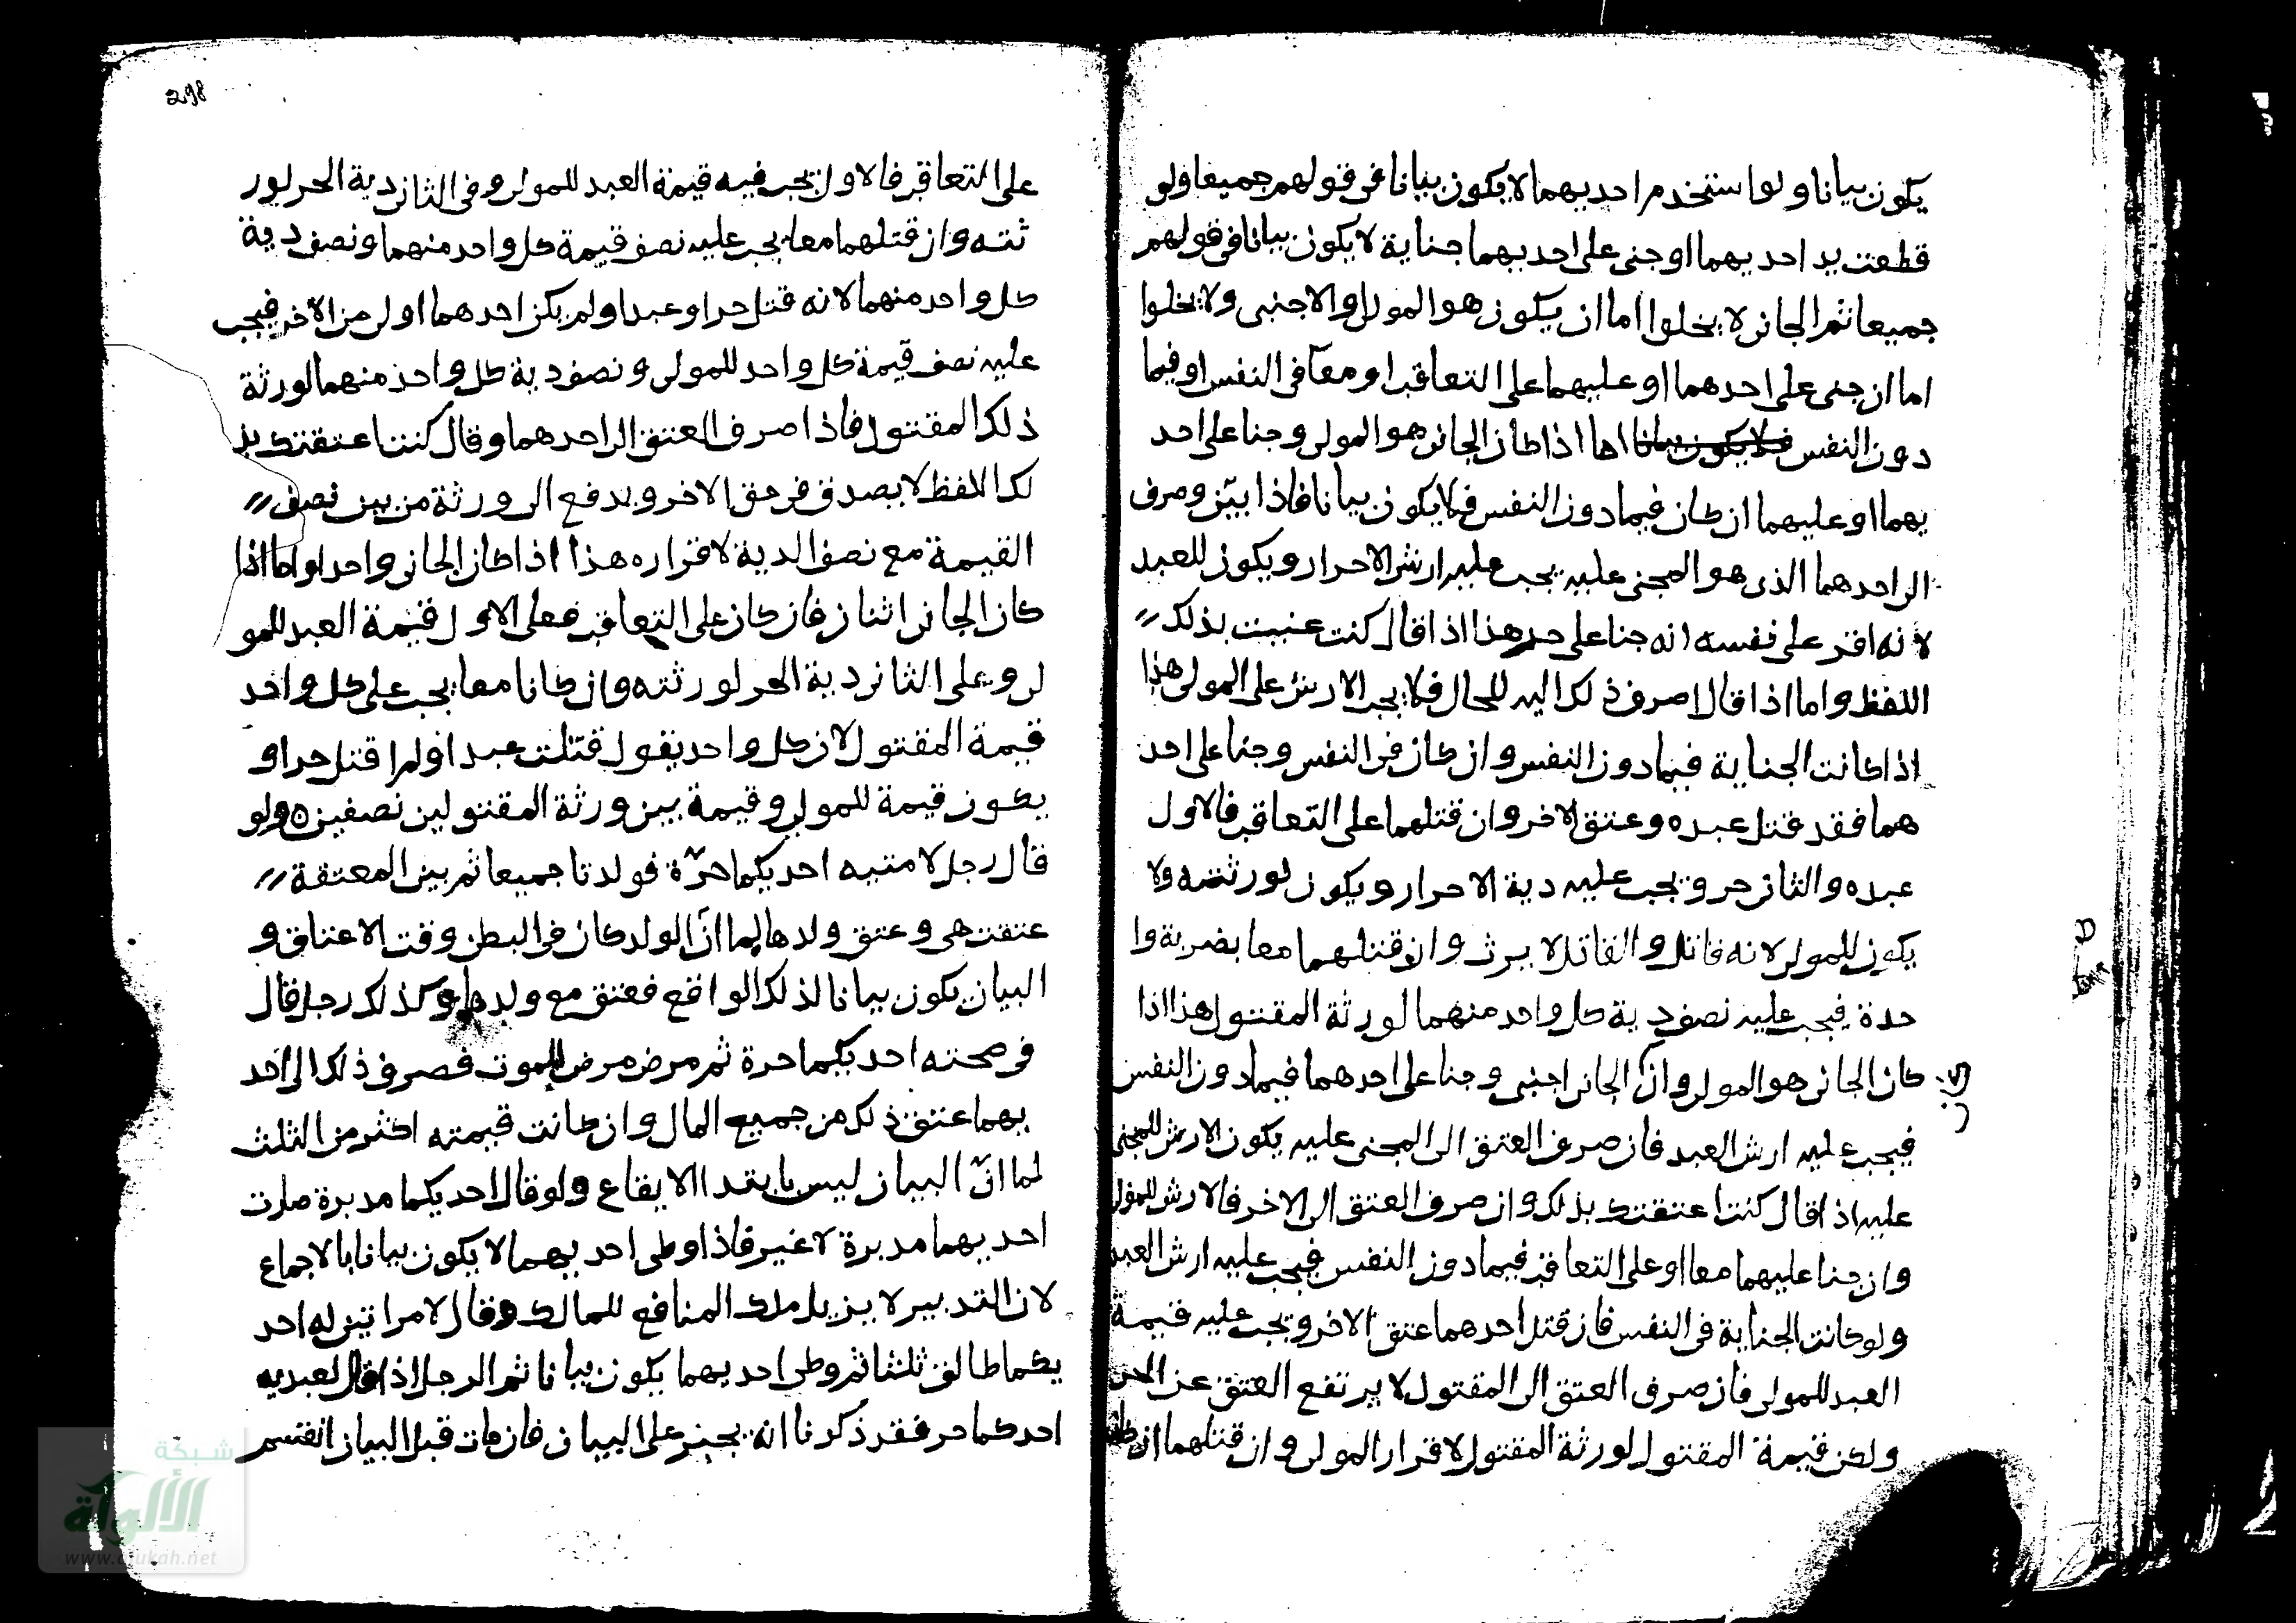 يكون بيانا ولو استخدم احديهما لا يكون بيانا في قولهم جميعا ولو
قطعت يد احديهما او جنى على احديهما جناية لا يكون بيانا في قولهم
جميعا ثم الجاني لا يخلوا اما ان يكون هو المولى او الاجنبى ولا يخلوا
اما ان جنى على احدهما او عليهما على التعاقب او معا في النفس او فيما
دون النفس فلا يكون بيانا اما اذا كان الجانى هو المولى وجنا على احد
يهما او عليهما ان كان فيما دون النفس فلا يكون بيانا فاذا بين وصرف
الى احدهما الذى هو المجنى عليه يجب عليه ارش الاحرار ويكون للعبد
لانه اقر على نفسه انه جنا على حر هذا اذا قال كنت عنيت بذلك
اللفظ واما اذا قال اصرف ذلك اليه للحال فلا يجب الارش على المولى هذا
اذا كانت الجناية فيما دون النفس وان كان في النفس وجنا على احد
هما فقد قتل عبده وعتق الاخر وان قتلهما على التعاقب فالاول
عبده والثانى حر ويجب عليه دية الاحرار ويكون لورثته ولا
يكون للمولى لانه قاتل والقاتل لا يرث وان قتلهما معا بضربة وا
حدة فيجب عليه نصف دية كل واحد منهما لورثة المقتول هذا اذا
كان الجانى هو المولى وان الجانى اجنبى وجنا على احدهما فيما دون النفس
فيجب عليه ارش العبد فان صرف العتق الى المجنى عليه يكون الارش للمجنى
عليه اذا قال كنت اعتقتك بذلك وان صرف العتق الى الاخر فالارش للمولى
وان جنا عليهما معا او على التعاقب فيما دون النفس فيجب عليه ارش العبد
ولو كانت الجناية في النفس فان قتل احدهما عتق الاخر ويجب عليه قيمة
العبد للمولى فان صرف العتق الى المقتول لا يرتفع العتق عن
ولكن قيمة المقتول لورثة المقتول لاقرار المولى وان قتلهما ان كان
298
على التعاقب فالاول يجب فيه قيمة العبد للمولى وفى الثانى دية الحر لور
ثته وان قتلهما معا يجب عليه نصف قيمة كل واحد منهما ونصف دية
كل واحد منهما لانه قتل حرا وعبدا ولم يكن احدهما اولى من الاخر فيجب
عليه نصف قيمة كل واحد للمولى ونصف دية كل واحد منهما لورثة
ذلك المقتول فاذا صرف العتق الى احدهما وقال كنت اعتقتك بذ
لك اللفظ لا يصدق في حق الاخر ويدفع الى ورثة من بين نصف
القيمة مع نصف الدية لاقراره هذا اذا كان الجانى واحدا واما اذا
كان الجانى اثنان فان كان على التعاقب فعلى الاول قيمة العبد للمو
لى وعلى الثانى دية الحر لورثته وان كانا معا يجب على كل واحد
قيمة المقتول لان كل واحد يقول قتلت عبدا ولم اقتل حرا و
يكون قيمة للمولى وقيمة بين ورثة المقتولين نصفين ٥ ولو
قال رجل لامتيه احديكما حرّة فولدتا جميعا ثم بين المعتقة
عتقت هى وعتق ولدها لما انّ الولد كان في البطن وقت الاعتاق و
البيان يكون بيانا لذلك الواقع فعتق مع ولدها وكذلك رجل قال
في صحته احديكما حرة ثم مرض مرض الموت فصرف ذلك الى احد
يهما عتق ذلك من جميع المال وان كانت قيمته اكثر من الثلث
لما انّ البيان ليس بابتدا الايقاع ولو قال احديكما مدبرة صارت
احديهما مدبرة لا غير فاذا وطى احديهما لا يكون بيانا بالاجماع
لان التدبير لا يزيل ملك المنافع للمالك وقال لامراتين له احد
يكما طالق ثلثا ثم وطى احديهما يكون بيانا ثم الرجل اذا قال لعبديه
احدكما حر فقد ذكرنا انه يجبر على البيان فان مات قبل البيان انقسم
شبكة
الألوكة
www.alukah.net